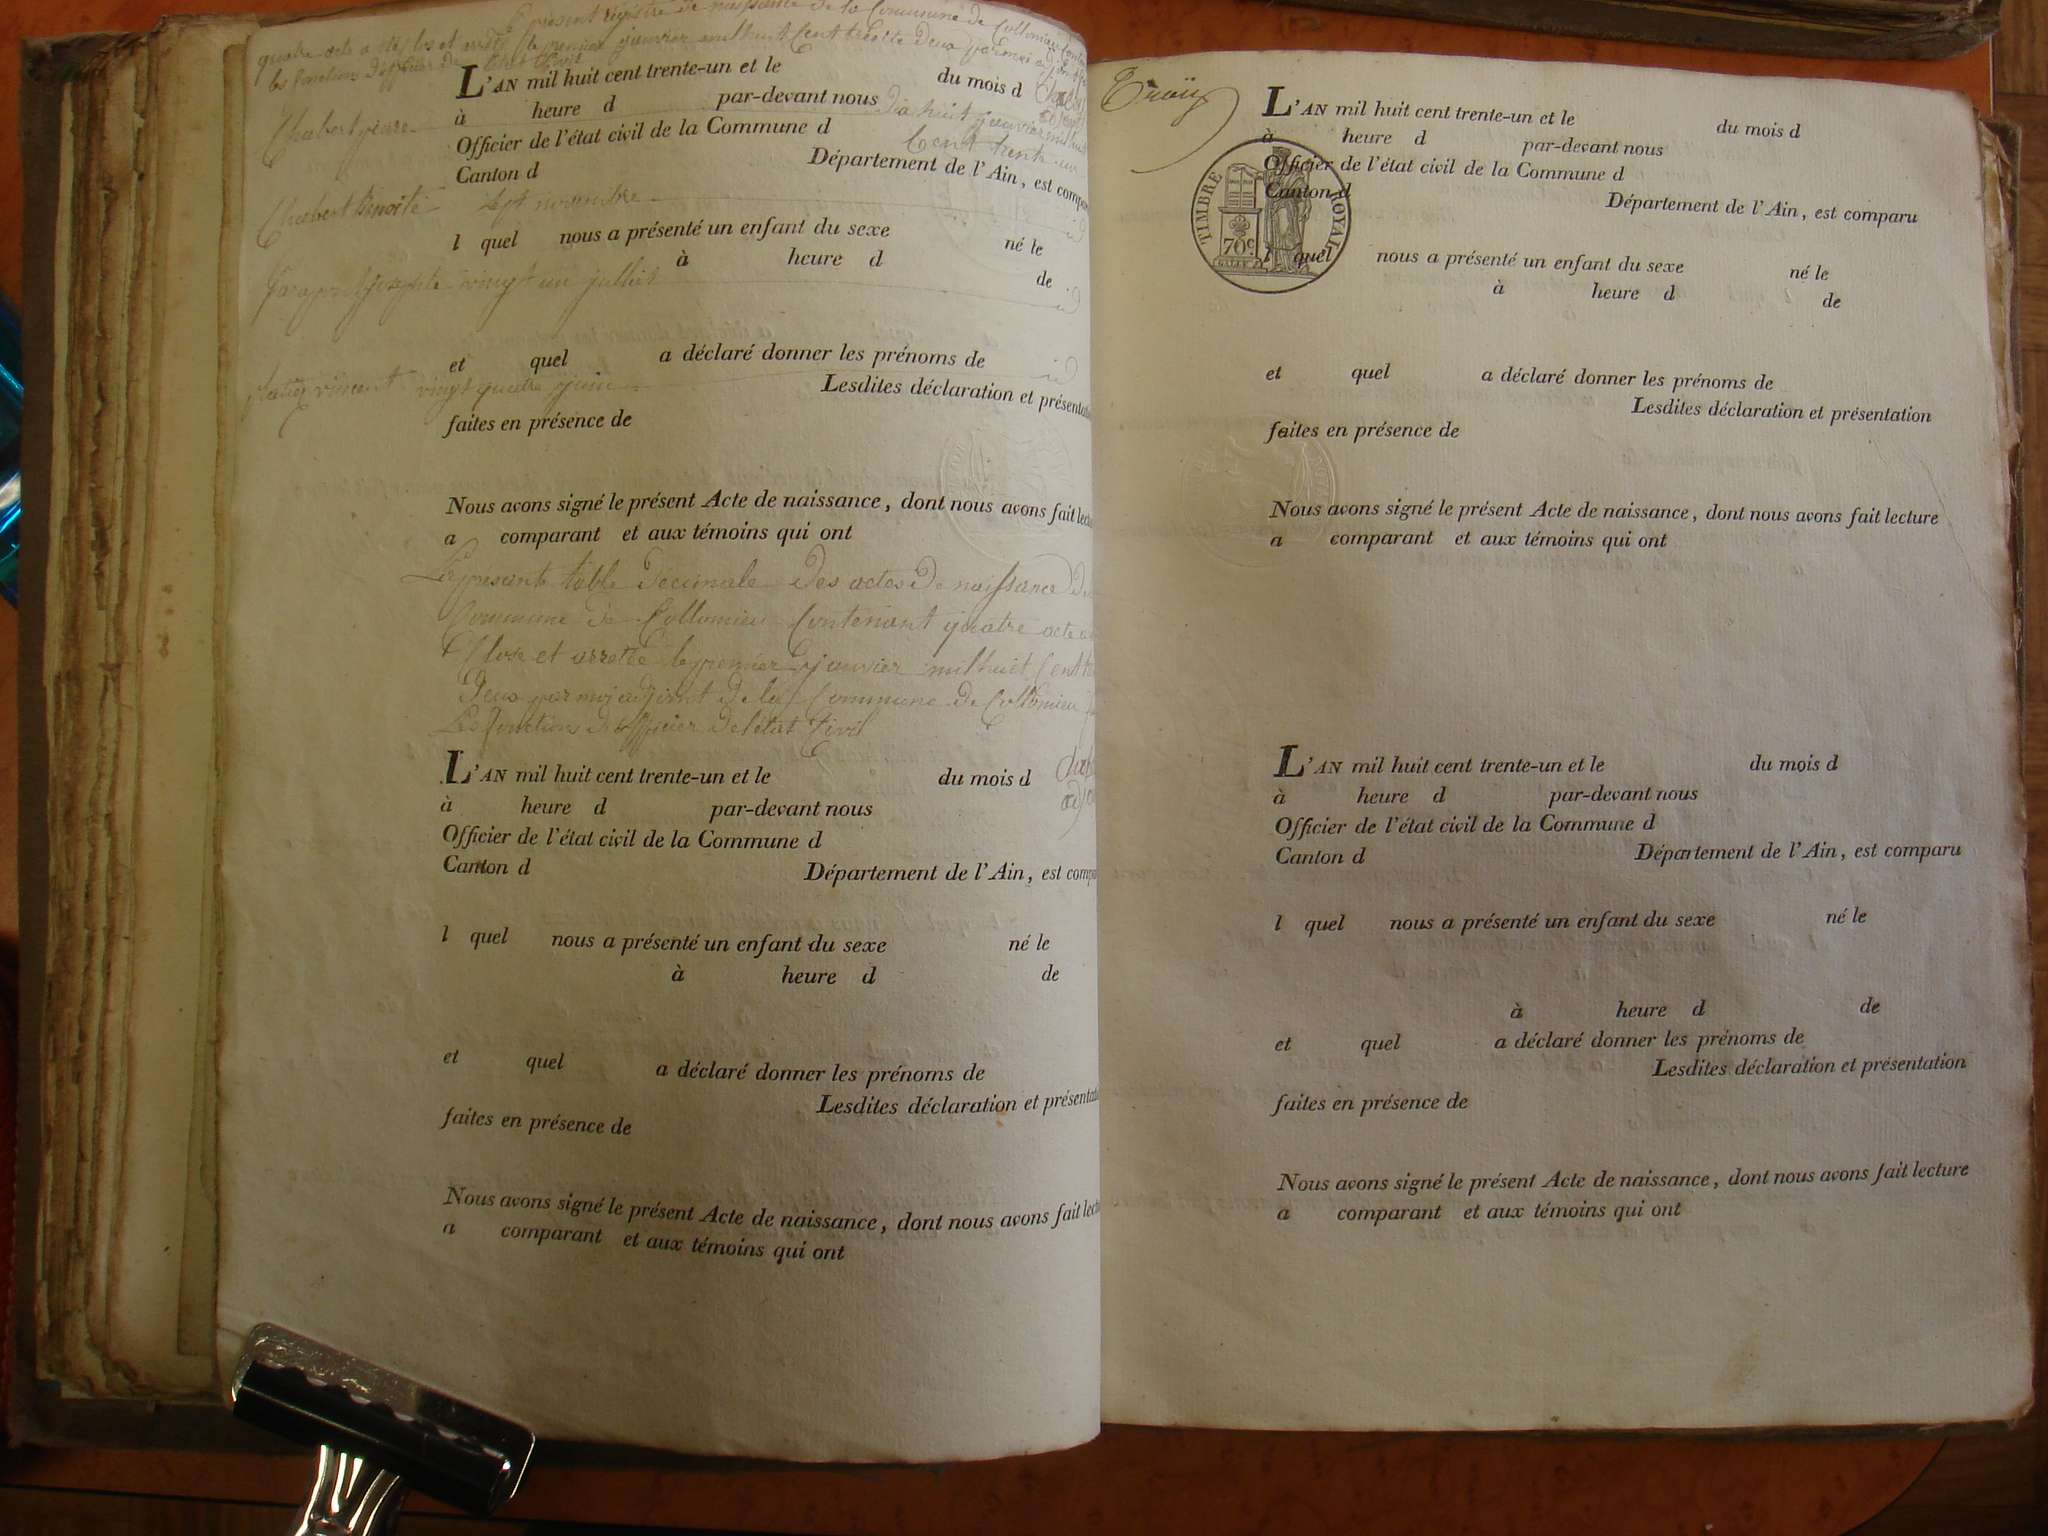 present registre de naissance de la Commune de Collomieu
quatre acte a été clos et le premier janvier mil huit Cent trente Deux par moi
les fonctions D'officier de l'état Civil
L'AN mil huit cent trente-un et le du mois d
à heure d par-devant nous
Chabert pierre Dix huit janvier mil huit
Cent trente un
Officier de l'état civil de la Commune d
Canton d Département de l'Ain, est compa
Chabert Benoite Sept novembre id
l quel nous a présenté un enfant du sexe né le
à heure d de
vingt un juillet id
et quel a déclaré donner les prénoms de
vincent vingt quatre juin id
Lesdites déclaration et présentat
faites en présence de
Nous avons signé le présent Acte de naissance, dont nous avons fait lect
a comparant et aux témoins qui ont
La présente table Décennale Des actes De naissance De
Commune de Collomieu Contenant quatre acte a
Close et arretée le premier janvier mil huit Cent
Deux par moi adjoint De la Commune De Collomieu
Les fonctions D'officier De l'état Civil
L'AN mil huit cent trente-un et le du mois d
à heure d par-devant nous
Officier de l'état civil de la Commune d
Canton d Département de l'Ain, est comp
l quel nous a présenté un enfant du sexe né le
à heure d de
et quel a déclaré donner les prénoms de
Lesdites déclaration et présentat
faites en présence de
Nous avons signé le présent Acte de naissance, dont nous avons fait lect
a comparant et aux témoins qui ont
L'AN mil huit cent trente-un et le du mois d
à heure d par-devant nous
Officier de l'état civil de la Commune d
TIMBRE ROYAL
70c
Canton d Département de l'Ain, est comparu
l quel nous a présenté un enfant du sexe né le
à heure d de
et quel a déclaré donner les prénoms de
Lesdites déclaration et présentation
faites en présence de
Nous avons signé le présent Acte de naissance, dont nous avons fait lecture
a comparant et aux témoins qui ont
L'AN mil huit cent trente-un et le du mois d
à heure d par-devant nous
Officier de l'état civil de la Commune d
Canton d Département de l'Ain, est comparu
l quel nous a présenté un enfant du sexe né le
à heure d de
et quel a déclaré donner les prénoms de
Lesdites déclaration et présentation
faites en présence de
Nous avons signé le présent Acte de naissance, dont nous avons fait lecture
a comparant et aux témoins qui ont